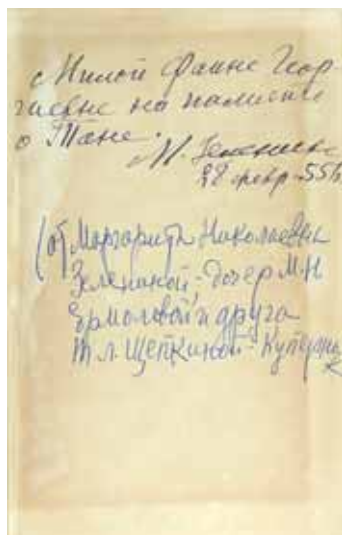 Милой Фаине Геор-
гиевне на память
о Тане.
М. Зеленина
28 февр. 55 г.
(от Маргариты Николаевны
Зелениной - дочери М.Н
Ермоловой и друга
Т.Л. Щепкиной-Куперник